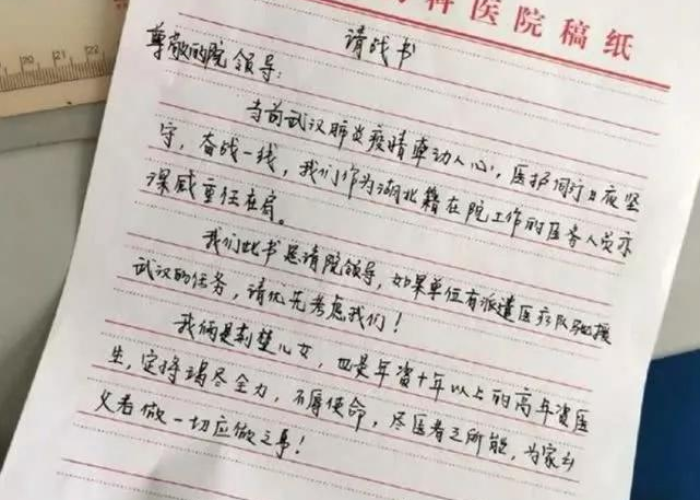 科医院稿纸
请战书
尊敬的院领导:
当前武汉肺炎疫情牵动人心,医护同行日夜坚
守,奋战一线,我们作为湖北籍在院工作的医务人员亦
深感重任在肩。
我们此书恳请院领导,如果单位有派遣医疗队驰援
武汉的任务,请优先考虑我们!
我俩是荆楚儿女,也是年资十年以上的高年资医
生,定将竭尽全力,不辱使命,尽医者之所能,为家乡
父老做一切应做之事!
20
21
22